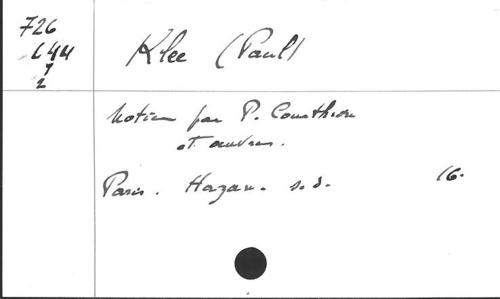 726
644
1
2
Klee (Paul)
Notice par P. Courthion
et œuvres.
Paris. Hazan. s.d. 16.